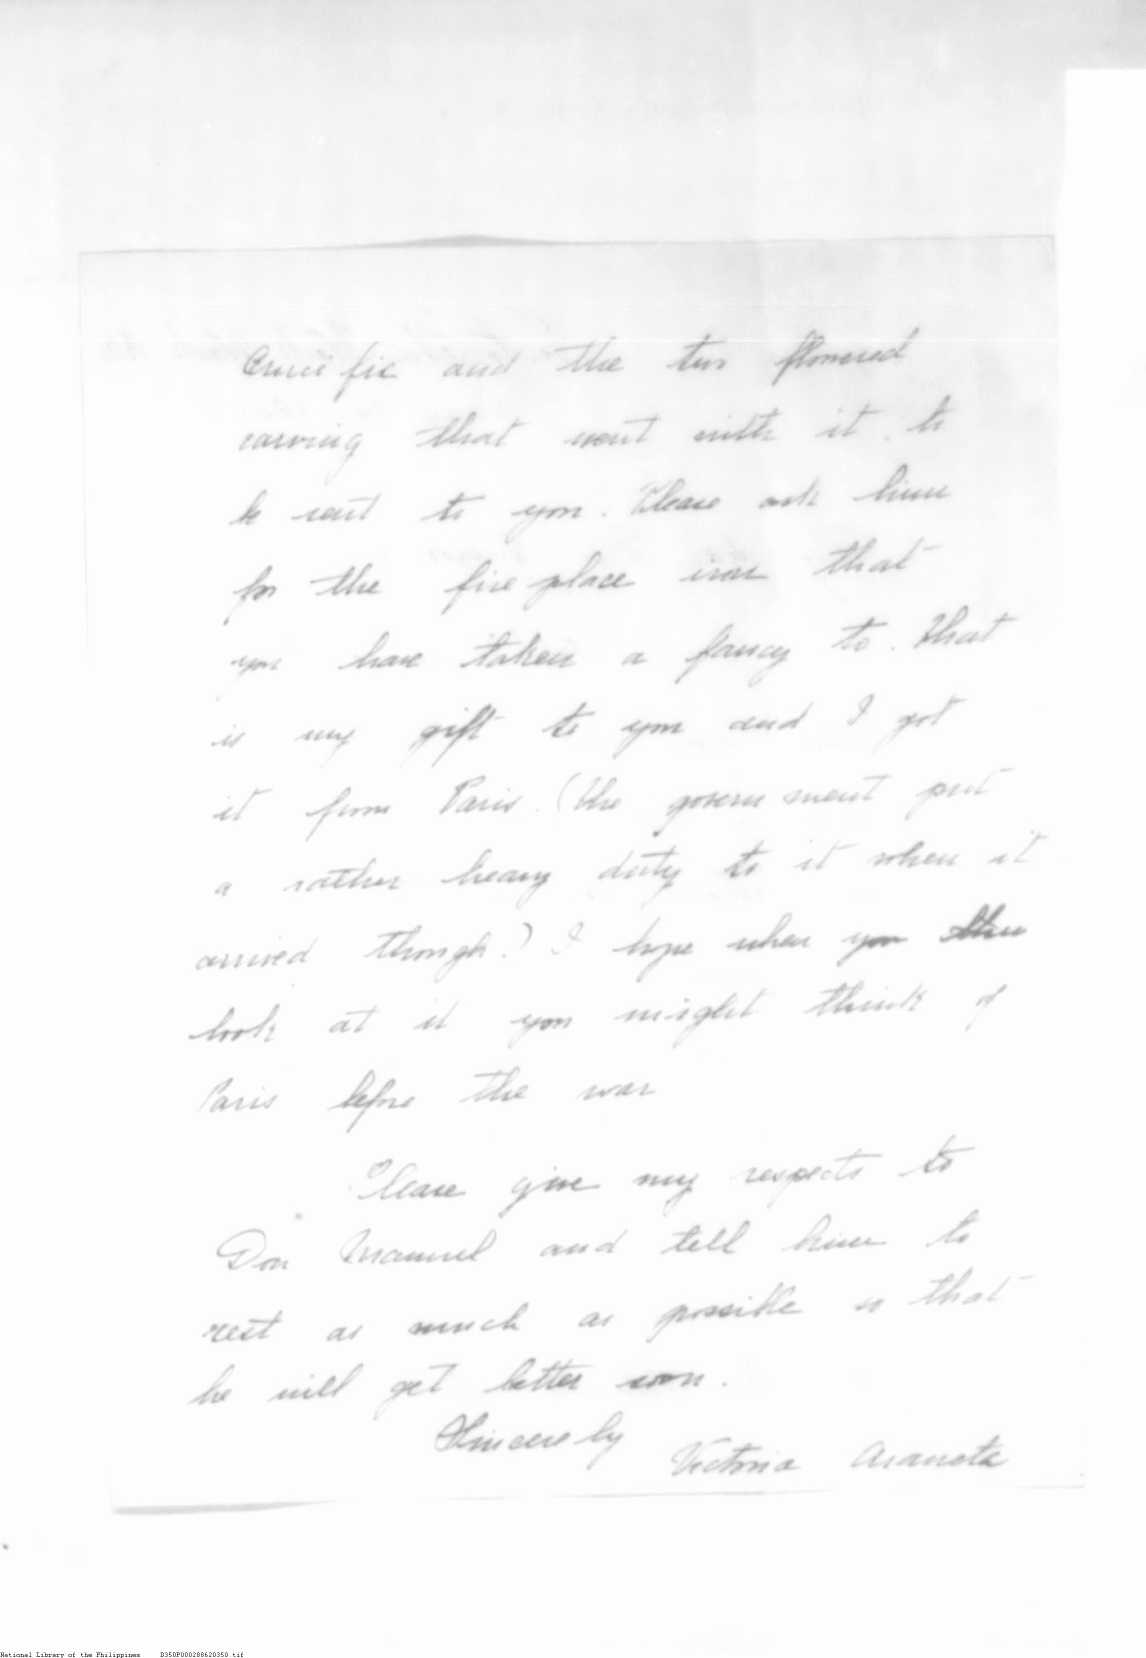 Crucifix and the two flowered
carving that went with it to
be sent to you. Please ask him
for the fire place iron that
you have taken a fancy to. That
is my gift to you and I got
it from Paris. (The government put
a rather heavy duty to it when it
arrived though.) I hope when you
look at it you might think of
Paris before the war
Please give my respects to
Don Manuel and tell him to
rest as much as possible so that
he will get better soon.
Sincerely
Victoria Araneta
National Library of the Philippines D350P000288620350.tif